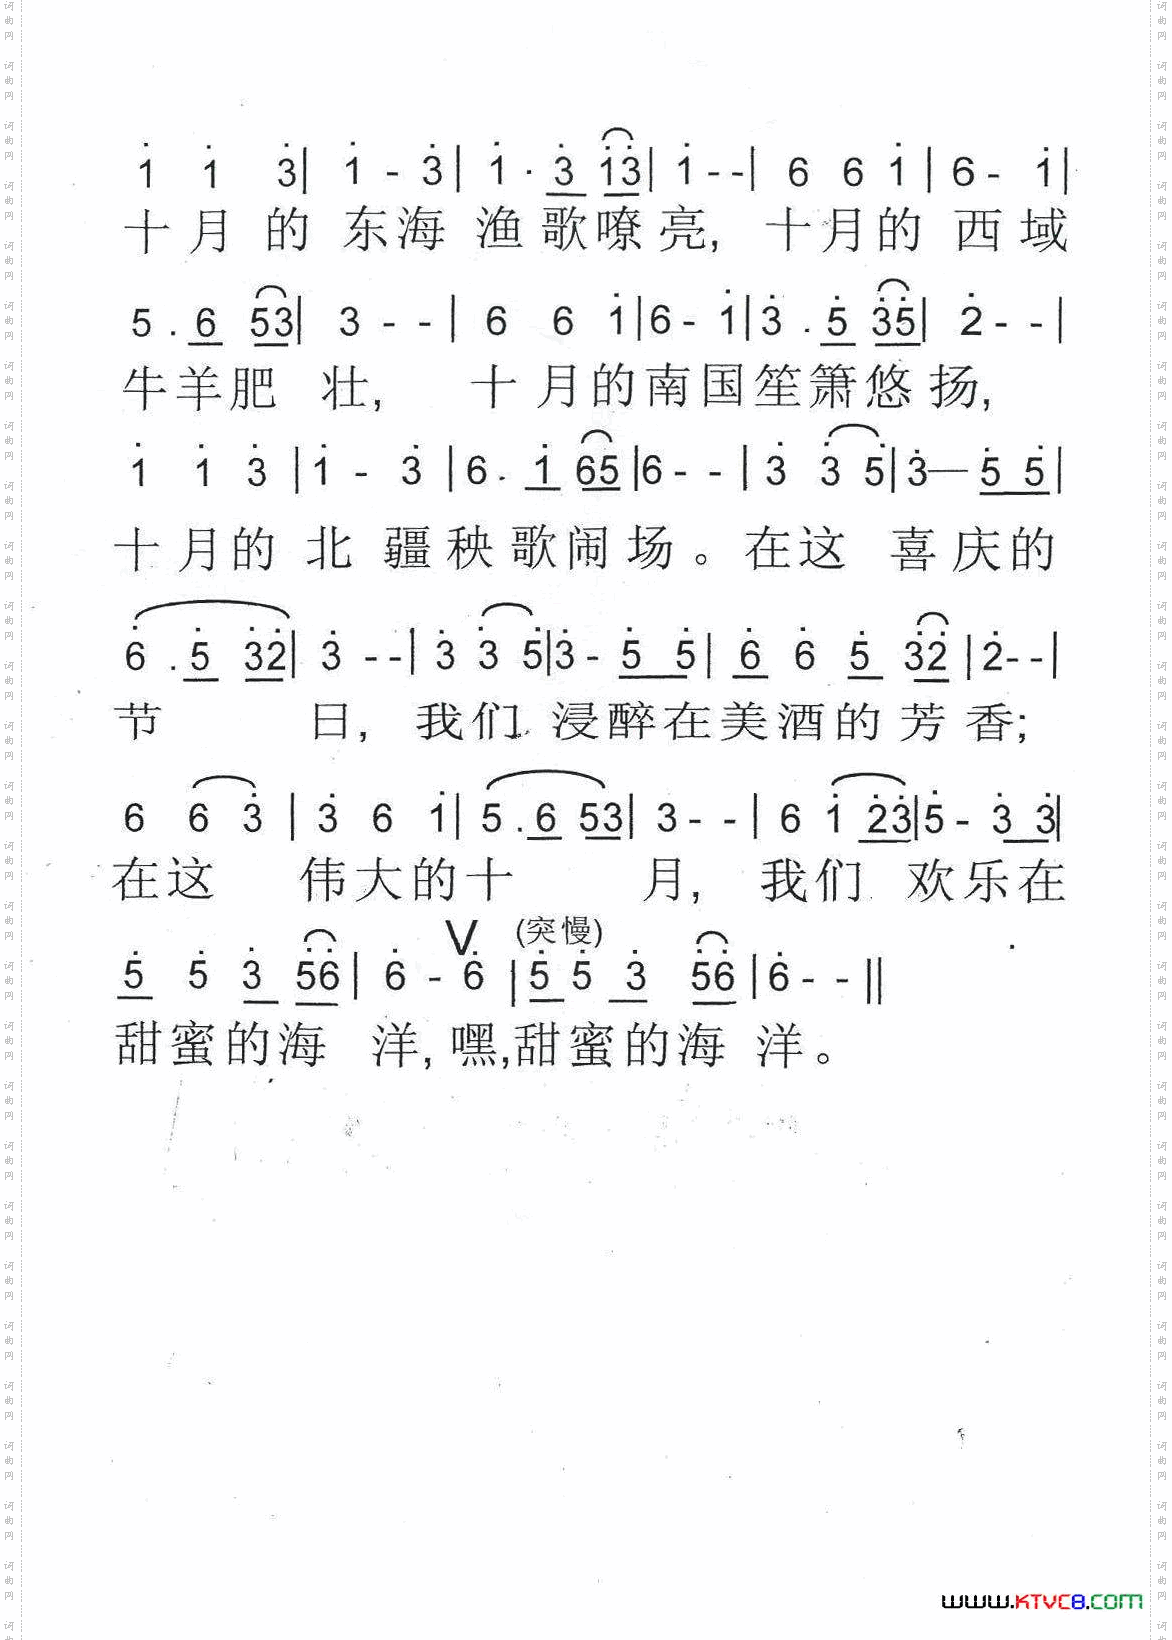 1̇ 1̇ 3̇| 1̇ - 3̇| 1̇ · 3̇ 1̇3̇| 1̇ - -| 6 6 1̇| 6 - 1̇|
十月的东海渔歌嘹亮,十月的西域
5 . 6 53| 3 - -| 6 6 1̇| 6 - 1̇| 3̇ . 5̇ 3̇5̇| 2̇ - -|
牛羊肥壮,十月的南国笙箫悠扬,
1̇ 1̇ 3̇| 1̇ - 3̇| 6 . 1̇ 65| 6 - -| 3̇ 3̇ 5̇| 3̇ — 5̇ 5̇|
十月的北疆秧歌闹场。在这喜庆的
6̇ . 5̇ 3̇2̇| 3̇ - -| 3̇ 3̇ 5̇| 3̇ - 5̇ 5̇| 6̇ 6̇ 5̇ 3̇2̇| 2̇ - -|
节日,我们浸醉在美酒的芳香;
6 6 3̇| 3̇ 6 1̇| 5 . 6 53| 3 - -| 6 1̇ 2̇3̇| 5̇ - 3̇ 3̇|
在这伟大的十月,我们欢乐在
V (突慢)
5̇ 5̇ 3̇ 5̇6̇| 6̇ - 6̇| 5̇ 5̇ 3̇ 5̇6̇| 6̇ - -||
甜蜜的海洋,嘿,甜蜜的海洋。
www.KTVC8.com